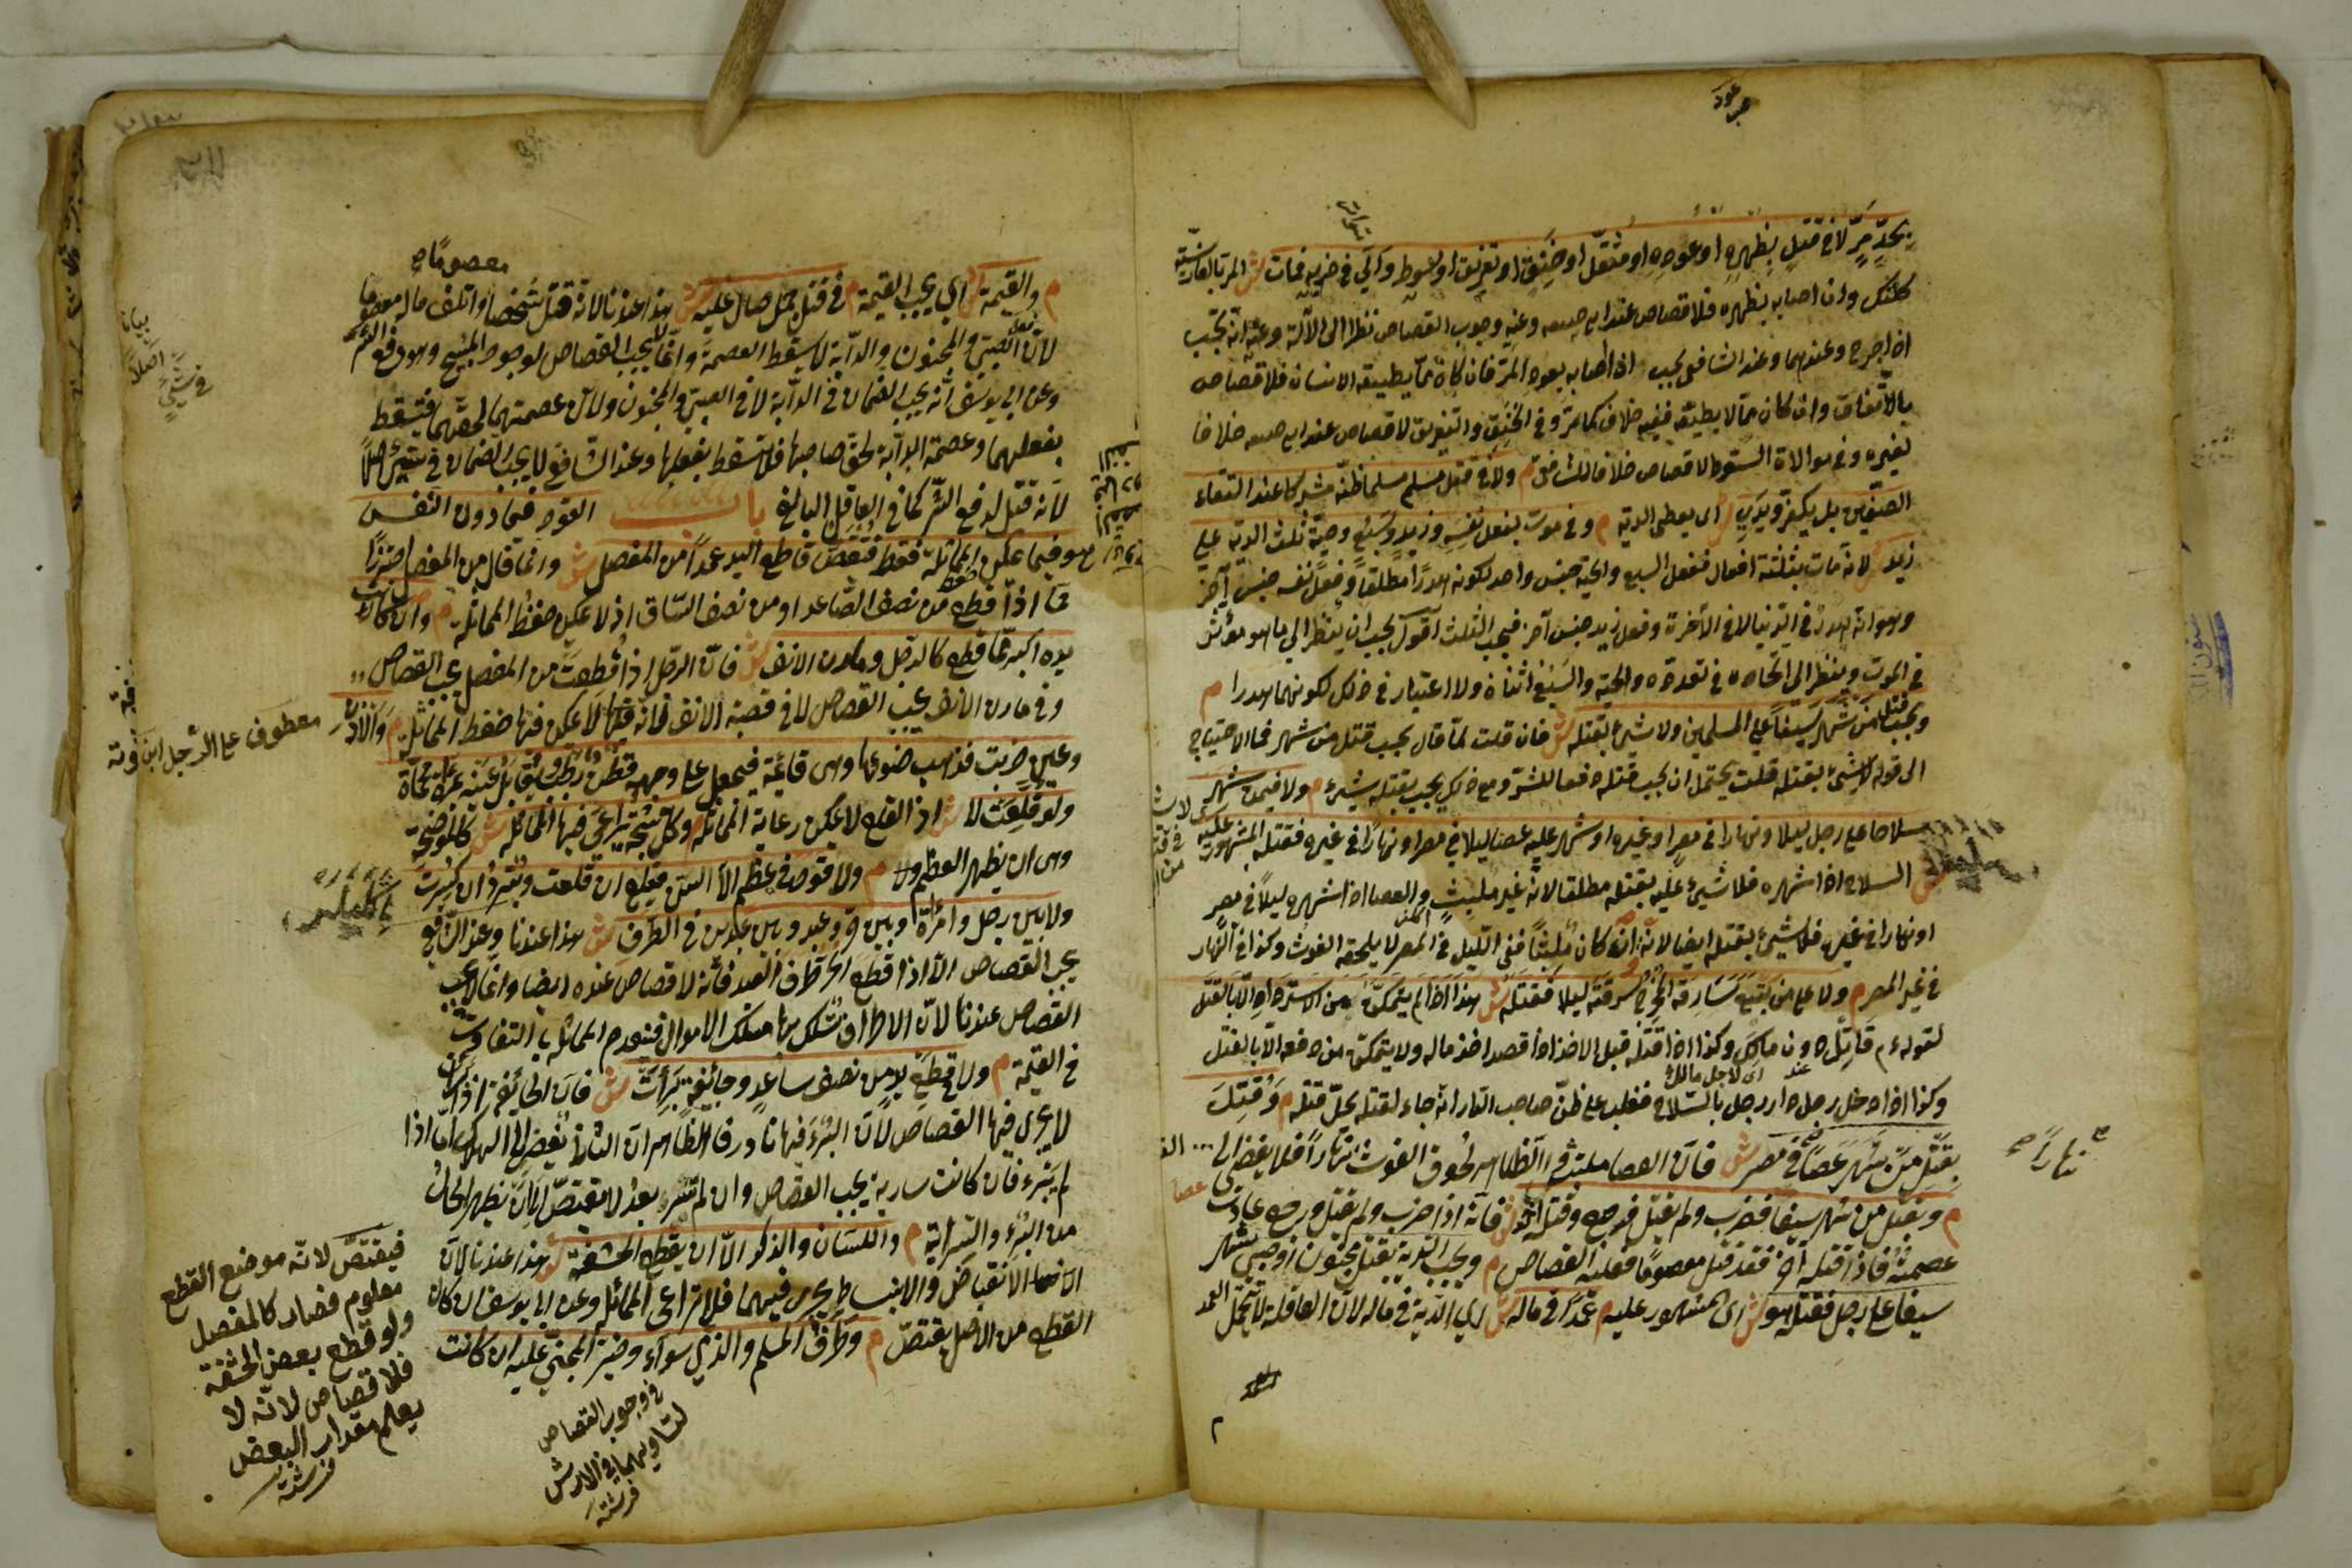 بحدِّ مرّ لا في قتل بظهره او عوده او مثقل او خنق او تغريق او سوط والى في ضربه فمات ش المر بالفارسية
كلنك وان اصابه بظهره فلا قصاص عند ابي حنيفة وعنه وجوب القصاص نظرا الى الآلة وعنه انه يجب
اذا جرح وعندهما وعند الشافعي يجب اذا اصابه بعود المر فان كان مما يطيقه الانسان فلا قصاص
بالاتفاق وان كان مما لا يطيقه ففيه خلاف كما مر وفي الخنق والتغريق لا قصاص عند ابي حنيفة خلافا
لغيره وفي موالاة السوط لا قصاص خلافا للشافعي م ولا في قتل مسلم مسلما ظنه مشركا عند التقاء
الصفين بل يكفر ويدي ش اى يعطى الدية م وفي موت بفعل نفسه وزيد وسبع وحية ثلث الدية على
زيد ش لانه مات بثلثة افعال ففعل السبع والحية جنس واحد لكونه هدرا مطلقا وفعل نفسه جنس آخر
وهو انه هدر في الدنيا لا في الآخرة وفعل زيد جنس آخر فيجب الثلث اقول يجب ان ينظر الى ما هو مؤثر
في الموت وينظر الى اتحاده في تعدده والحية والسبع اثنان ولا اعتبار في ذلك لكونهما هدرا م
ويجب قتل من شهر سيفا على المسلمين ولا شئ بقتله ش فان قلت لما قال يجب قتل من شهر فما الاحتياج
الى قوله لا شئ بقتله قلت يحتمل ان يجب قتله دفعا للشر ومع ذلك يجب بقتله شئ م ولا فيمن شهر
سلاحا على رجل ليلا ونهارا في مصر او غيره او شهر عليه عصا ليلا في مصر او نهارا في غيره فقتله المشهور عليه
السلاح اذا شهره فلا شئ عليه بقتله مطلقا لانه غير ملبث والعصا اذا شهره ليلا في مصر
او نهارا في غيره فلا شئ بقتله ايضا لانه وان كان ملبثا ففي الليل في المصر لا يلحقه الغوث وكذا في النهار
في غير المصر م ولا على من تبع سارقه المخرج سرقته ليلا فقتله ش هذا اذا لم يتمكن من الاسترداد الا بالقتل
لقوله ء م قاتل دون مالك وكذا اذا قتله قبل الاخذ اذا قصد اخذ ماله ولا يتمكن من دفعه الا بالقتل
وكذا اذا دخل رجل دار رجل بالسلاح فغلب على ظن صاحب الدار انه جاء لقتله يحل قتله م وقتل
بقتل من شهر عصا في مصر ش فان العصا ملبث والظاهر لحوق الغوث نهارا فلا يفضى الى
م ويقتل من شهر سيفا فضرب ولم يقتل فرجع وقتله آخر ش فانه اذا ضرب ولم يقتل ورجع عادت
عصمته فاذا قتله آخر فقد قتل معصوما فعليه القصاص م ويجب الدية بقتل مجنون او صبي شهر
سيفا على رجل فقتله هو ش اى المشهور عليه م عمدا في ماله ش اى الدية في ماله لان العاقلة لا تتحمل العمد
اى لاجل مالك
نهارا صح
معصوما
م والقيمة ش اى يجب القيمة م في قتل جمل صال عليه ش هذا عندنا لانه قتل شخصا واتلف مالا معصوما
لان فعل الصبي والمجنون والدابة لا يسقط العصمة وانما لا يجب القصاص لوجود المبيح وهو دفع الشر
وعن ابي يوسف انه يجب الضمان في الدابة لا في الصبي والمجنون ولان عصمتهما لحقهما فتسقط
بفعلهما وعصمة الدابة لحق صاحبها فلا تسقط بفعلها وعند الشافعي لا يجب الضمان في شئ اصلا
لانه قتل لدفع الشر كما في العاقل البالغ باب القود فيما دون النفس
هو فيما يمكن المماثلة فقط فيقتص قاطع اليد عمدا من المفصل ش وانما قال من المفصل احترازا
عما اذا قطع من نصف الساعد او من نصف الساق اذ لا يمكن حفظ المماثلة م وان كانت
يده اكبر مما قطع كالرجل ومارن الانف ش فان الرجل اذا قطعت من المفصل يجب القصاص
وفي مارن الانف يجب القصاص لا في قصبة الانف فانه لا يمكن فيها حفظ المماثلة م والاذن
وعين ضربت فذهب ضوئها وهي قائمة فيجعل على وجهه قطن رطب ويقابل عينه بمرآة محماة
ولو قلعت لا ش اذ القلع لا يمكن رعاية المماثلة م وكل شجة يراعى فيها المماثلة ش كالموضحة
وهي ان يظهر العظم م ولا قود في عظم الا السن فيقلع ان قلعت ويبرد ان كسرت
ولا بين رجل وامرأة وبين حر وعبد وبين عبدين في الطرف ش هذا عندنا وعند الشافعي
يجب القصاص الا اذا قطع الحر طرف العبد فانه لا قصاص عنده ايضا وانما لا يجب
القصاص عندنا لان الاطراف يسلك بها مسلك الاموال فينعدم المماثلة بالتفاوت
في القيمة م ولا في قطع يد من نصف ساعد وجائفة برأت ش فان الجائفة اذا برأت
لا يجرى فيها القصاص لان البرء فيها نادر فالظاهر ان الثاني يفضى الى الهلاك اما اذا
لم يبرء فان كانت سارية يجب القصاص وان لم تسر بعد لا يقتص الى ان يظهر الحال
من البرء والسراية م واللسان والذكر الا ان يقطع الحشفة ش هذا عندنا لان
الانقباض والانبساط يجرى فيهما فلا يراعى المماثلة وعن ابي يوسف ان كان
القطع من الاصل يقتص م وطرف المسلم والذمي سواء وخير المجني عليه ان كانت
في شئ اصلا
معطوف على الرجل ابن فرشته
فيقتص لانه موضع القطع
معلوم فصار كالمفصل
ولو قطع بعض الحشفة
فلا قصاص لانه لا
يعلم مقدار البعض
فرشته
في وجوب القصاص
لتساويهما في الارش
فرشته